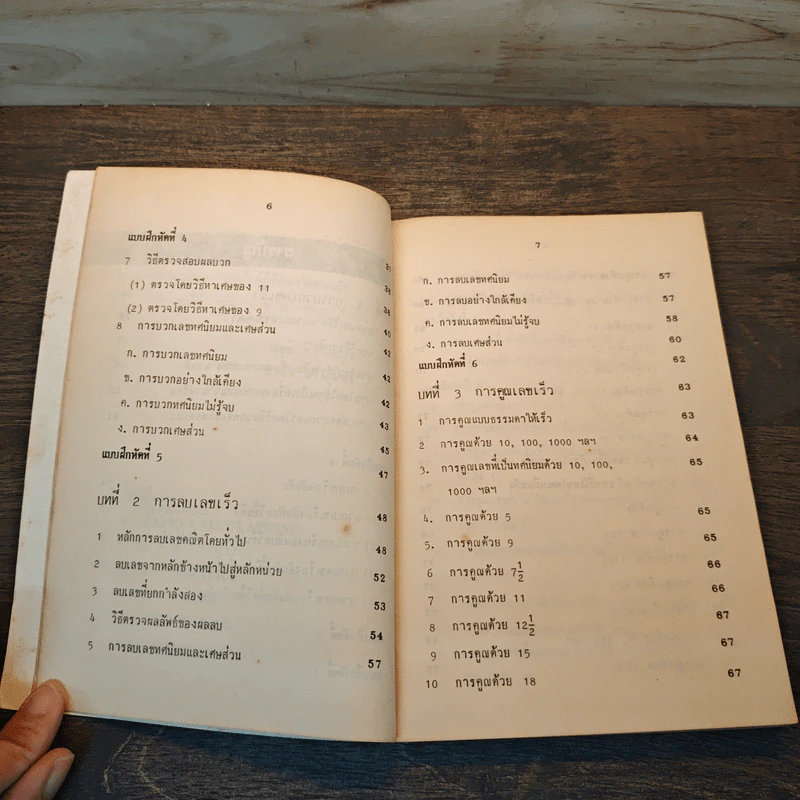 6
แบบฝึกหัดที่ 4
7 วิธีตรวจสอบผลบวก 37
(1) ตรวจโดยวิธีหาเศษของ 11 38
(2) ตรวจโดยวิธีหาเศษของ 9 38
8 การบวกเลขทศนิยมและเศษส่วน 40
ก. การบวกเลขทศนิยม 42
ข. การบวกอย่างใกล้เคียง 42
ค. การบวกทศนิยมไม่รู้จบ 42
ง. การบวกเศษส่วน 43
แบบฝึกหัดที่ 5 45
47
บทที่ 2 การลบเลขเร็ว 48
1 หลักการลบเลขคณิตโดยทั่วไป 48
2 ลบเลขจากหลักข้างหน้าไปสู่หลักหน่วย 52
3 ลบเลขที่ยกกำลังสอง 53
4 วิธีตรวจผลลัพธ์ของผลลบ 54
5 การลบเลขทศนิยมและเศษส่วน 57
7
ก. การลบเลขทศนิยม 57
ข. การลบอย่างใกล้เคียง 57
ค. การลบเลขทศนิยมไม่รู้จบ 58
ง. การลบเศษส่วน 60
แบบฝึกหัดที่ 6 62
บทที่ 3 การคูณเลขเร็ว 63
1 การคูณแบบธรรมดาให้เร็ว 63
2 การคูณด้วย 10, 100, 1000 ฯลฯ 64
3. การคูณเลขที่เป็นทศนิยมด้วย 10, 100, 65
1000 ฯลฯ
4. การคูณด้วย 5 65
5. การคูณด้วย 9 65
6 การคูณด้วย 7½ 66
7 การคูณด้วย 11 66
8 การคูณด้วย 12½ 67
9 การคูณด้วย 15 67
10 การคูณด้วย 18 67